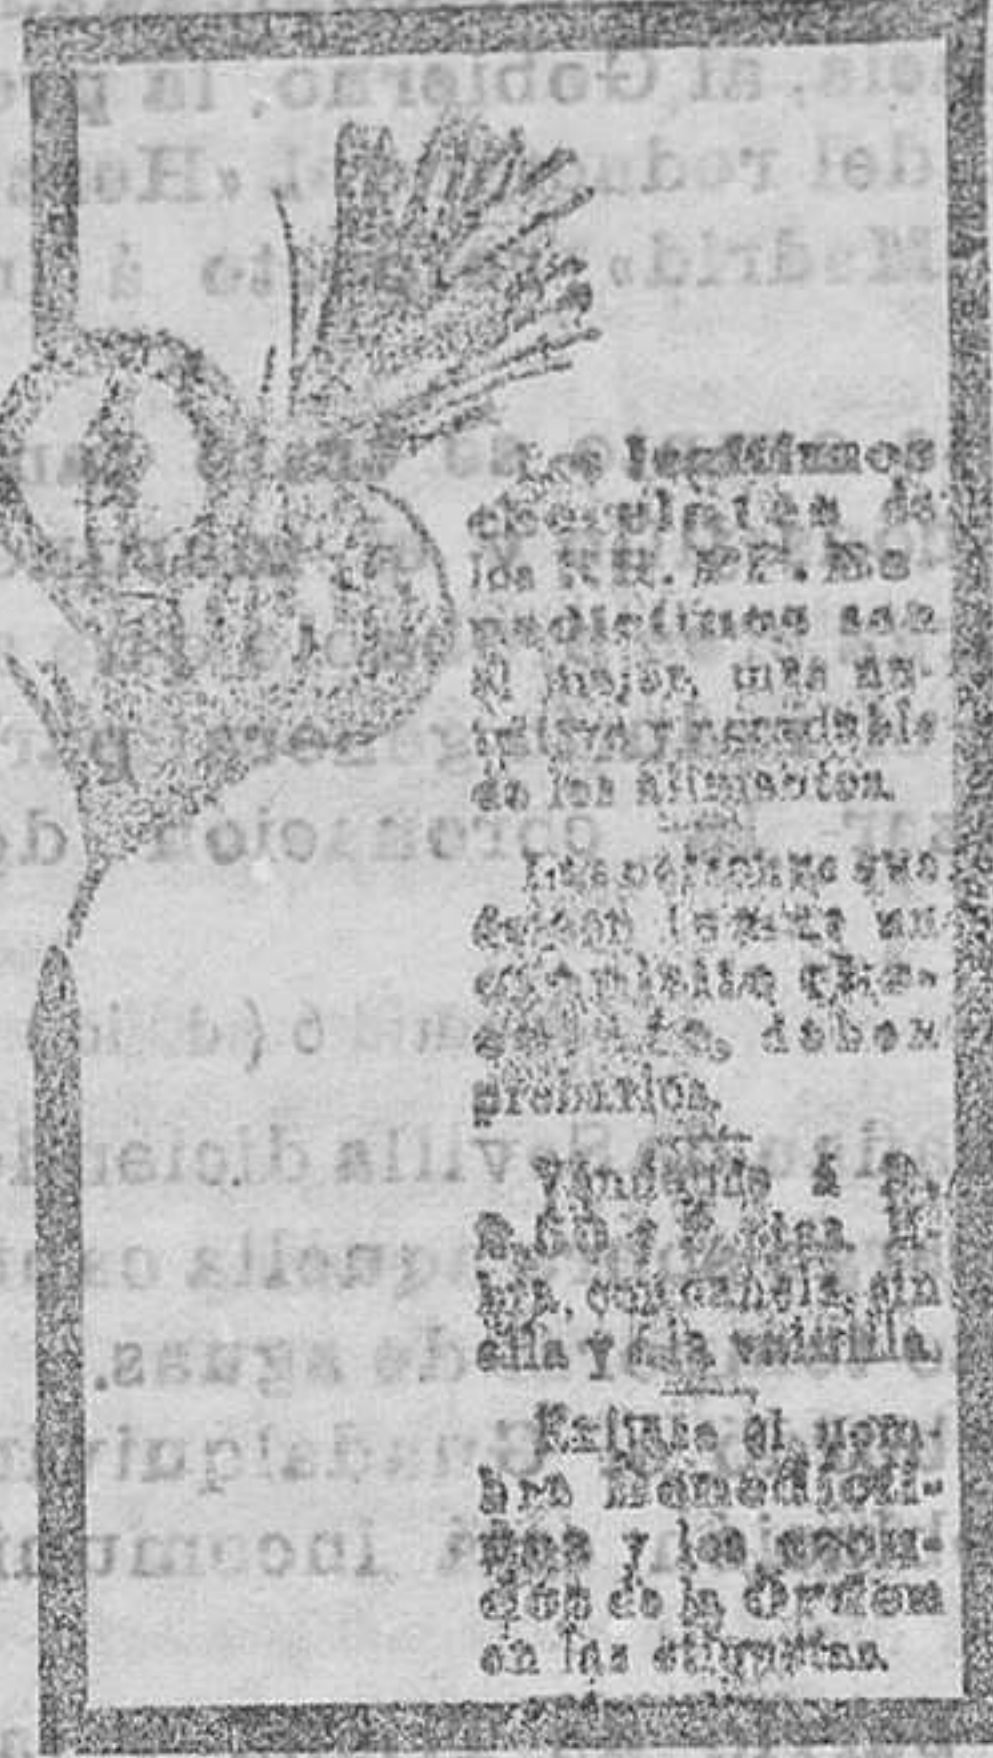 Los legítimos
chocolates de
los RR. PP. Be-
nedictinos son
el mejor, más nu-
tritivo y agradable
de los alimentos.
Las personas que
deseen tomar un
exquisito cho-
colate, deben
probarlos.
Véndense á 2,
2,50 y 3 ptas. li-
bra, con canela, sin
ella y á la vainilla.
Exíjase el nom-
bre Benedicti-
nos y los escu-
dos de la Orden
en las etiquetas.